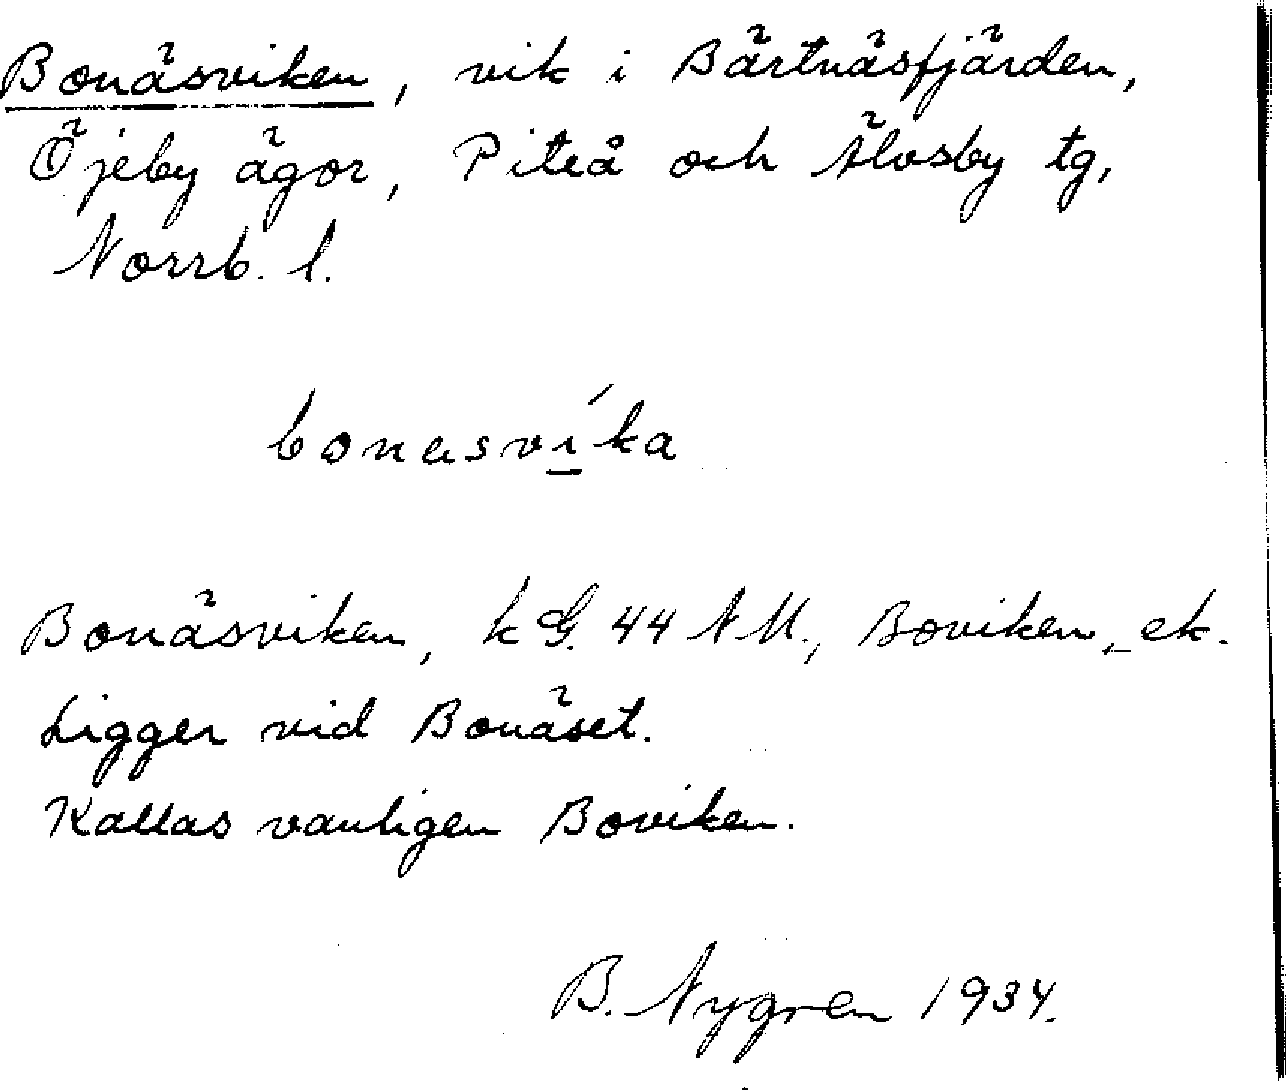 Bonäsviken, vik i Bärtnäsfjärden,
Öjeby ägor, Piteå och Älvsby tg,
Norrb. l.
bonasvíka
Bonäsviken, k G. 44 NM., Boviken, ek.
Ligger vid Bonäset.
Kallas vanligen Boviken.
B. Nygren 1934.